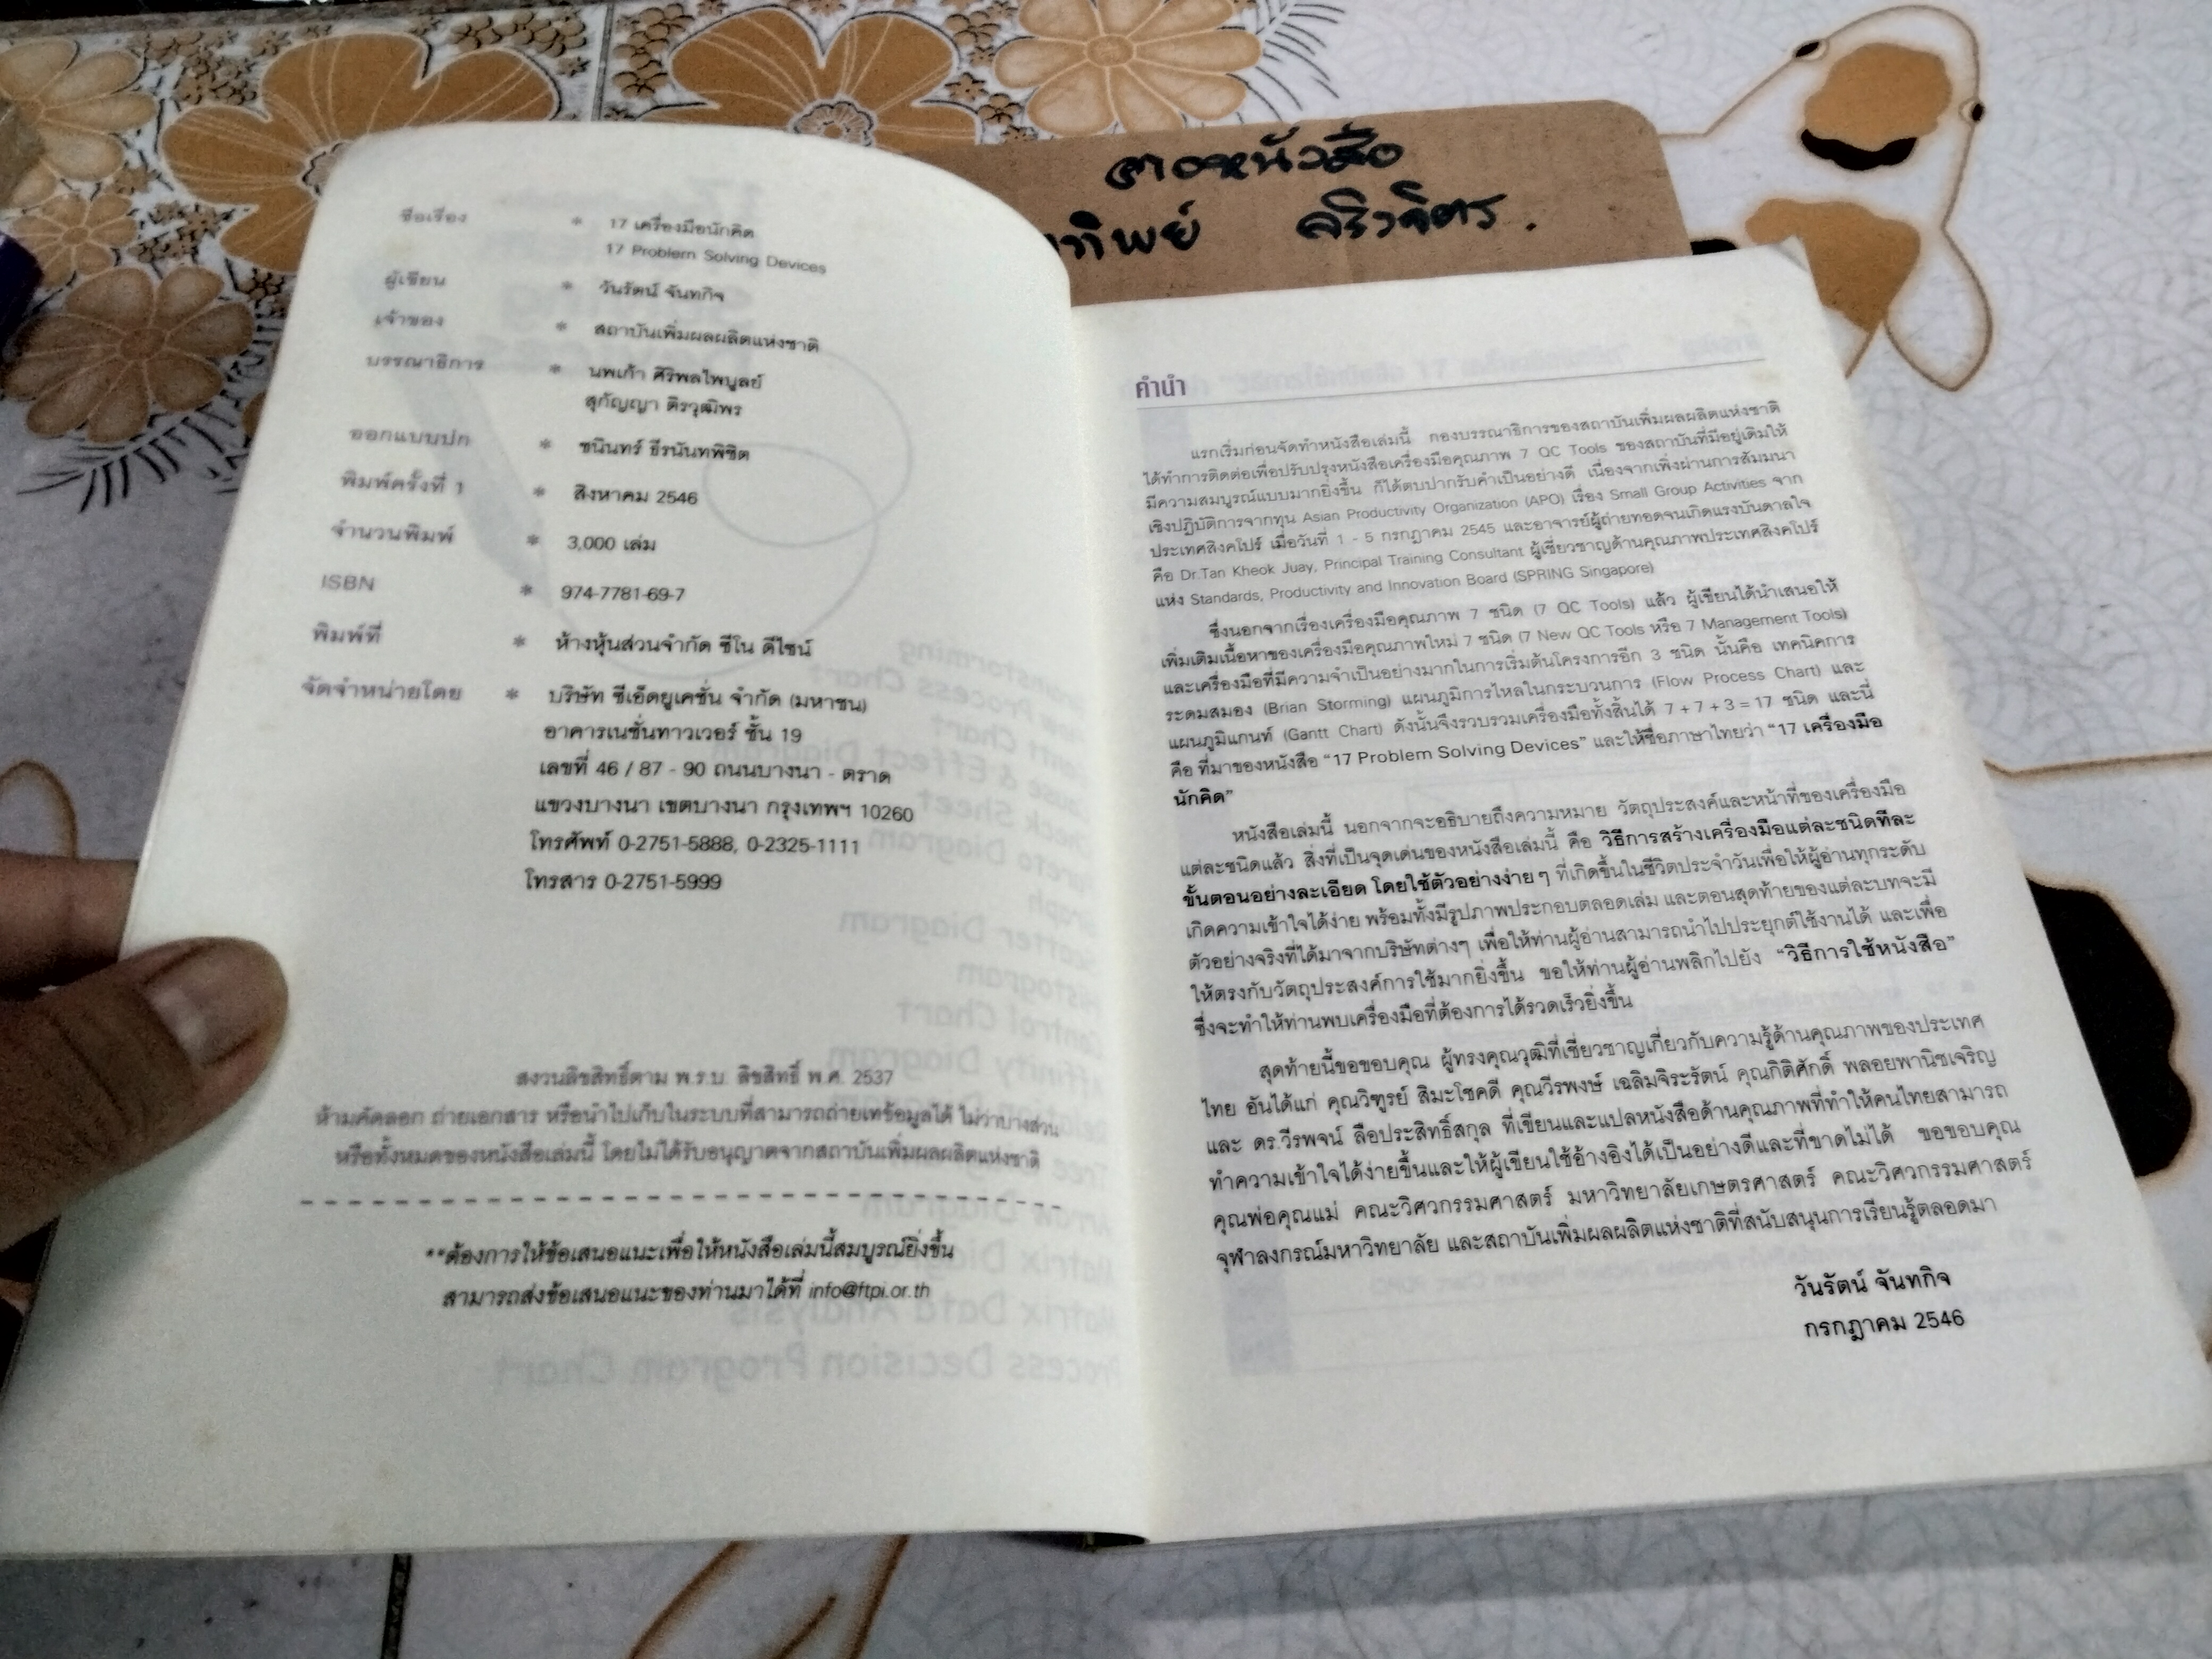 ตาองหนังสือ
ทิพย์ ศิริวิจิตร.
ชื่อเรื่อง * 17 เครื่องมือนักคิด
17 Problem Solving Devices
ผู้เขียน * วันรัตน์ จันทกิจ
เจ้าของ * สถาบันเพิ่มผลผลิตแห่งชาติ
บรรณาธิการ * นพเก้า ศิริพลไพบูลย์
สุกัญญา ติรวุฒิพร
ออกแบบปก * ชนินทร์ ธีรนันทพิชิต
พิมพ์ครั้งที่ 1 * สิงหาคม 2546
จำนวนพิมพ์ * 3,000 เล่ม
ISBN * 974-7781-69-7
พิมพ์ที่ * ห้างหุ้นส่วนจำกัด ซีโน ดีไซน์
จัดจำหน่ายโดย * บริษัท ซีเอ็ดยูเคชั่น จำกัด (มหาชน)
อาคารเนชั่นทาวเวอร์ ชั้น 19
เลขที่ 46 / 87 - 90 ถนนบางนา - ตราด
แขวงบางนา เขตบางนา กรุงเทพฯ 10260
โทรศัพท์ 0-2751-5888, 0-2325-1111
โทรสาร 0-2751-5999
สงวนลิขสิทธิ์ตาม พ.ร.บ. ลิขสิทธิ์ พ.ศ. 2537
ห้ามคัดลอก ถ่ายเอกสาร หรือนำไปเก็บในระบบที่สามารถถ่ายเทข้อมูลได้ ไม่ว่าบางส่วน
หรือทั้งหมดของหนังสือเล่มนี้ โดยไม่ได้รับอนุญาตจากสถาบันเพิ่มผลผลิตแห่งชาติ
**ต้องการให้ข้อเสนอแนะเพื่อให้หนังสือเล่มนี้สมบูรณ์ยิ่งขึ้น
สามารถส่งข้อเสนอแนะของท่านมาได้ที่ info@ftpi.or.th
คำนำ
แรกเริ่มก่อนจัดทำหนังสือเล่มนี้ กองบรรณาธิการของสถาบันเพิ่มผลผลิตแห่งชาติ
ได้ทำการติดต่อเพื่อปรับปรุงหนังสือเครื่องมือคุณภาพ 7 QC Tools ของสถาบันที่มีอยู่เดิมให้
มีความสมบูรณ์แบบมากยิ่งขึ้น ก็ได้ตบปากรับคำเป็นอย่างดี เนื่องจากเพิ่งผ่านการสัมมนา
เชิงปฏิบัติการจากทุน Asian Productivity Organization (APO) เรื่อง Small Group Activities จาก
ประเทศสิงคโปร์ เมื่อวันที่ 1 - 5 กรกฎาคม 2545 และอาจารย์ผู้ถ่ายทอดจนเกิดแรงบันดาลใจ
คือ Dr.Tan Kheok Juay, Principal Training Consultant ผู้เชี่ยวชาญด้านคุณภาพประเทศสิงคโปร์
แห่ง Standards, Productivity and Innovation Board (SPRING Singapore)
ซึ่งนอกจากเรื่องเครื่องมือคุณภาพ 7 ชนิด (7 QC Tools) แล้ว ผู้เขียนได้นำเสนอให้
เพิ่มเติมเนื้อหาของเครื่องมือคุณภาพใหม่ 7 ชนิด (7 New QC Tools หรือ 7 Management Tools)
และเครื่องมือที่มีความจำเป็นอย่างมากในการเริ่มต้นโครงการอีก 3 ชนิด นั้นคือ เทคนิคการ
ระดมสมอง (Brian Storming) แผนภูมิการไหลในกระบวนการ (Flow Process Chart) และ
แผนภูมิแกนท์ (Gantt Chart) ดังนั้นจึงรวบรวมเครื่องมือทั้งสิ้นได้ 7 + 7 + 3 = 17 ชนิด และนี่
คือ ที่มาของหนังสือ “17 Problem Solving Devices” และให้ชื่อภาษาไทยว่า “17 เครื่องมือ
นักคิด”
หนังสือเล่มนี้ นอกจากจะอธิบายถึงความหมาย วัตถุประสงค์และหน้าที่ของเครื่องมือ
แต่ละชนิดแล้ว สิ่งที่เป็นจุดเด่นของหนังสือเล่มนี้ คือ วิธีการสร้างเครื่องมือแต่ละชนิดทีละ
ขั้นตอนอย่างละเอียด โดยใช้ตัวอย่างง่าย ๆ ที่เกิดขึ้นในชีวิตประจำวันเพื่อให้ผู้อ่านทุกระดับ
เกิดความเข้าใจได้ง่าย พร้อมทั้งมีรูปภาพประกอบตลอดเล่ม และตอนสุดท้ายของแต่ละบทจะมี
ตัวอย่างจริงที่ได้มาจากบริษัทต่างๆ เพื่อให้ท่านผู้อ่านสามารถนำไปประยุกต์ใช้งานได้ และเพื่อ
ให้ตรงกับวัตถุประสงค์การใช้มากยิ่งขึ้น ขอให้ท่านผู้อ่านพลิกไปยัง “วิธีการใช้หนังสือ”
ซึ่งจะทำให้ท่านพบเครื่องมือที่ต้องการได้รวดเร็วยิ่งขึ้น
สุดท้ายนี้ขอขอบคุณ ผู้ทรงคุณวุฒิที่เชี่ยวชาญเกี่ยวกับความรู้ด้านคุณภาพของประเทศ
ไทย อันได้แก่ คุณวิฑูรย์ สิมะโชคดี คุณวีรพงษ์ เฉลิมจิระรัตน์ คุณกิติศักดิ์ พลอยพานิชเจริญ
และ ดร.วีรพจน์ ลือประสิทธิ์สกุล ที่เขียนและแปลหนังสือด้านคุณภาพที่ทำให้คนไทยสามารถ
ทำความเข้าใจได้ง่ายขึ้นและให้ผู้เขียนใช้อ้างอิงได้เป็นอย่างดีและที่ขาดไม่ได้ ขอขอบคุณ
คุณพ่อคุณแม่ คณะวิศวกรรมศาสตร์ มหาวิทยาลัยเกษตรศาสตร์ คณะวิศวกรรมศาสตร์
จุฬาลงกรณ์มหาวิทยาลัย และสถาบันเพิ่มผลผลิตแห่งชาติที่สนับสนุนการเรียนรู้ตลอดมา
วันรัตน์ จันทกิจ
กรกฎาคม 2546